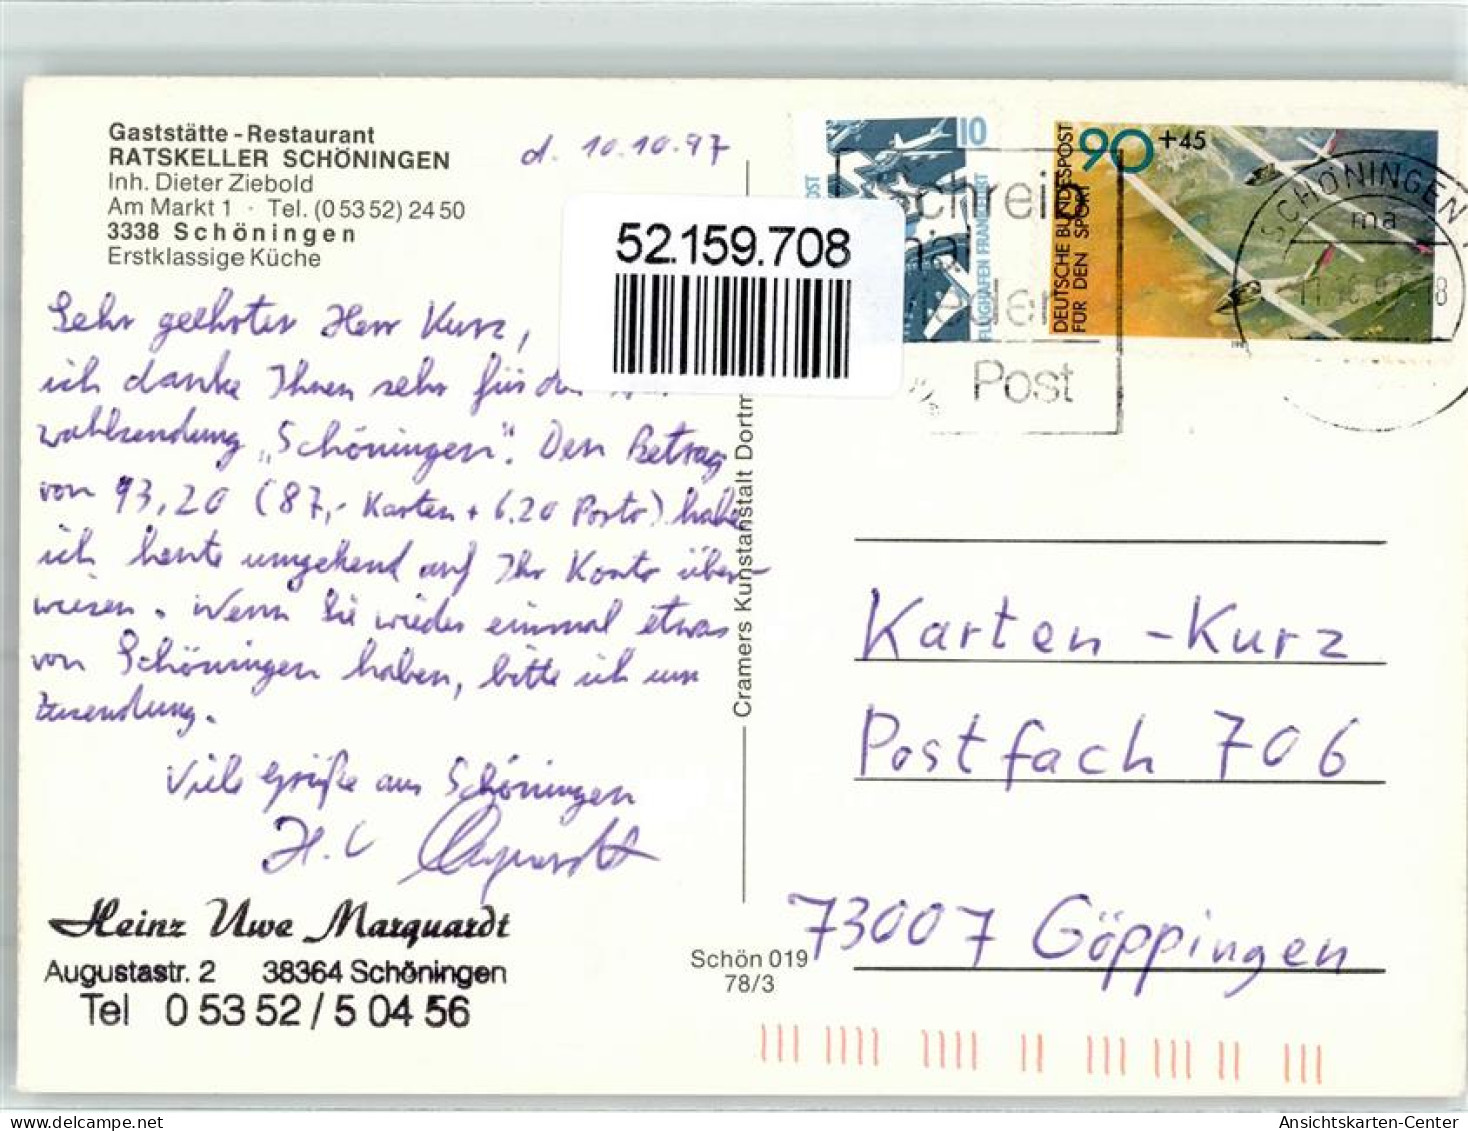 Gaststätte - Restaurant
RATSKELLER SCHÖNINGEN
Inh. Dieter Ziebold
Am Markt 1 · Tel. (0 53 52) 24 50
3338 Schöningen
Erstklassige Küche
d. 10.10.97
Sehr geehrter Herr Kurz,
ich danke Ihnen sehr für die
wahlsendung „Schöningen". Den Betrag
von 93,20 (87,- Karten + 6.20 Porto) habe
ich heute umgehend auf Ihr Konto über-
wiesen. Wenn Sie wieder einmal etwas
von Schöningen haben, bitte ich um
Zusendung.
Viele Grüße aus Schöningen
H.U. Marquardt
Heinz Uwe Marquardt
Augustastr. 2 38364 Schöningen
Tel 0 53 52 / 5 04 56
52.159.708
Cramers Kunstanstalt Dortm
Schön 019
78/3
10
FLUGHAFEN FRANKFURT
90 +45
DEUTSCHE BUNDESPOST
FÜR DEN SPORT
Schreib
mal
wieder
Post
SCHÖNINGEN
ma
Karten-Kurz
Postfach 706
73007 Göppingen
oldthing.de
Ansichtskarten-Center